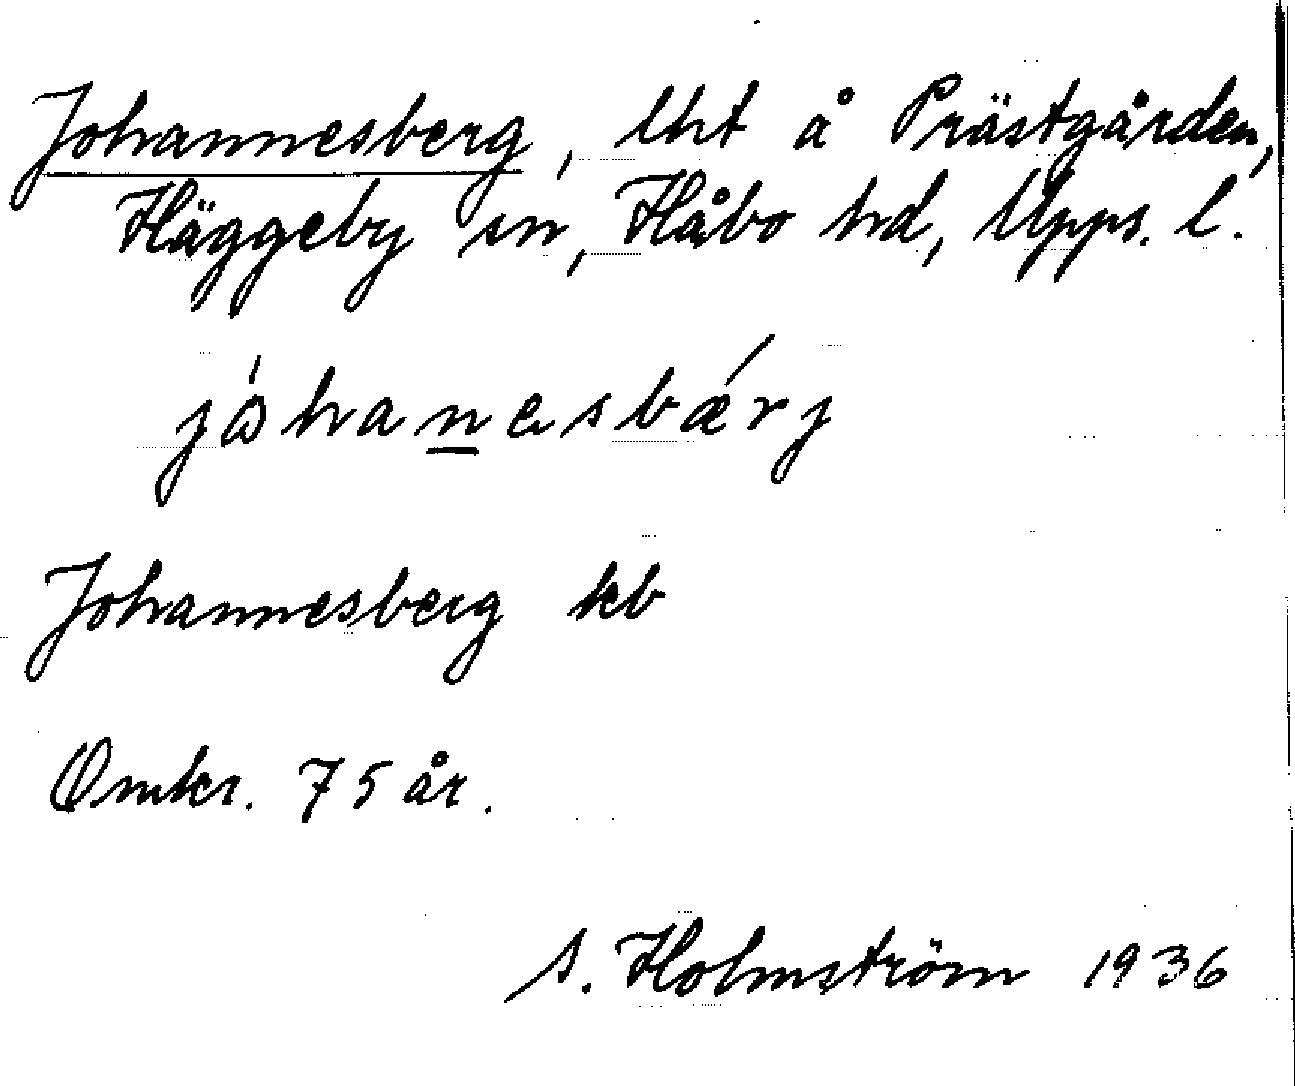 Johannesberg, lht å Prästgården,
Häggeby sn, Håbo hd, Upps. l.
jòhanesbǽrj
Johannesberg kb
Omkr. 75 år.
S. Holmström 1936